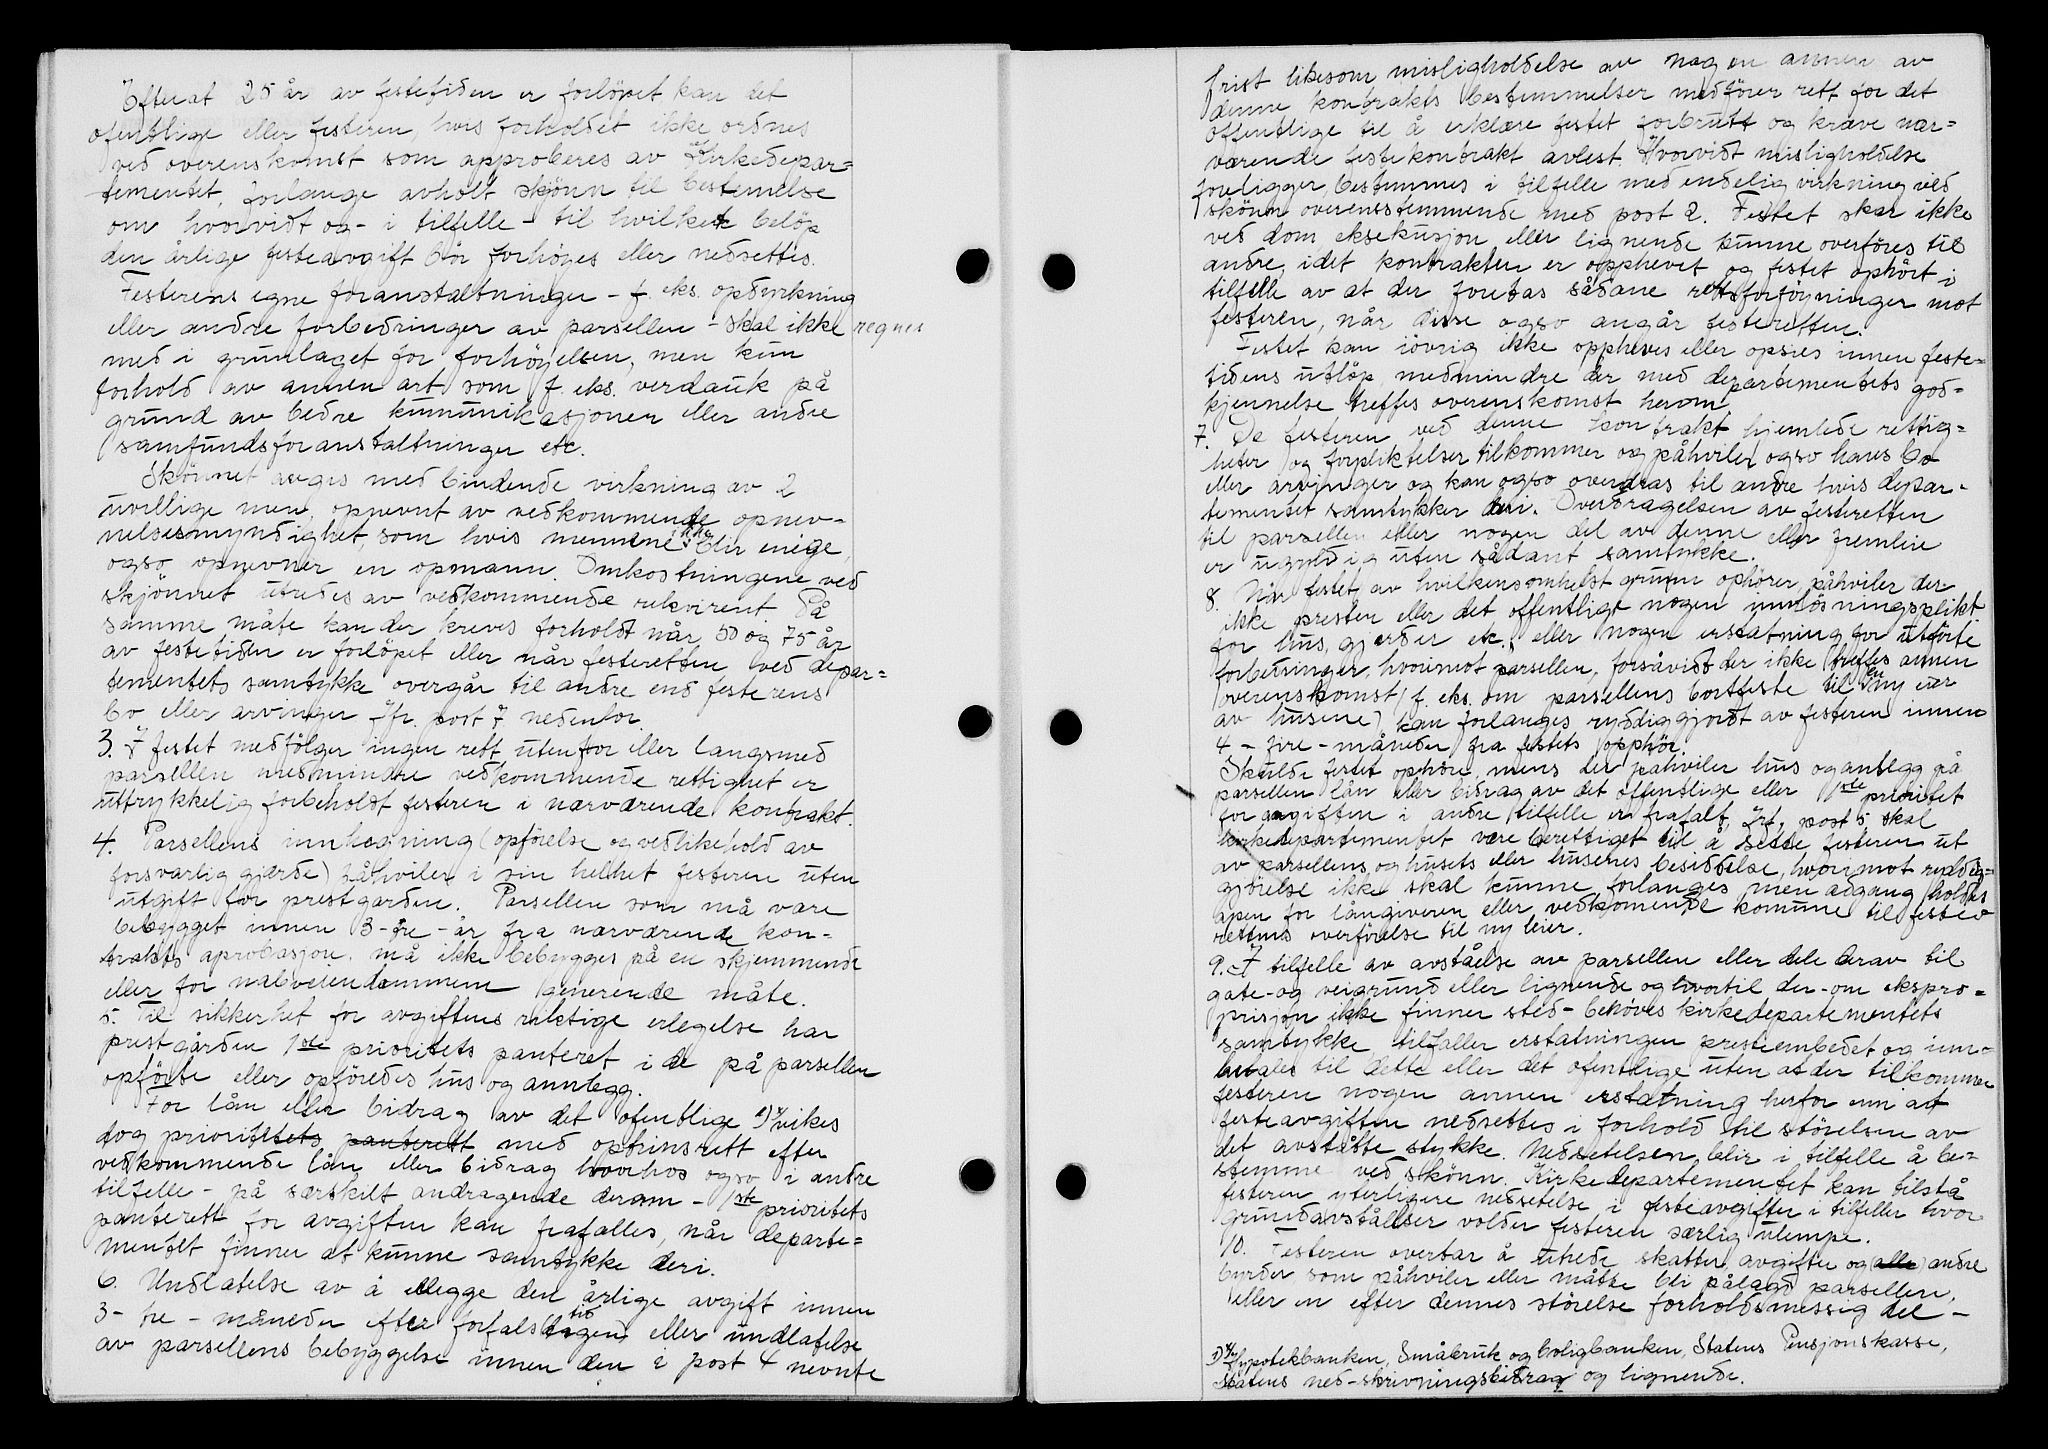 Efterat 25 år av festetiden er forlöpet kan det
ofentlige eller festeren, hvis forholdet ikke ordnes
ved overenskomst som approberes av Kirkedepar=
tementet, forlange avholt skönn til bestemelse
om hvorvidt og - i tilfelle - til hvilket belöp
den årlige festeavgift bör forhöyes eller nedsettes.
Festerens egne foranstaltninger - f. eks. opdyrkning
eller andre forbedringer av parsellen - skal ikke regnes
med i grunlaget for forhöyelsen, men kun
forhold av annen art som f. eks. verdauk på
grund av bedre kumunikasjoner eller andre
samfundsforanstaltninger etc.
Skönnet avgis med bindende virkning av 2
uvillige menn, opnevnt av vedkommende opnev-
nelsesmyndighet, som hvis mennene ikke blir enige,
ogso opnevner en opmann. Omkostningene ved
skjönnet utredes av vedkommende rekvirent. På
samme måte kan der kreves forholdt når 50 og 75 år
av festetiden er forlöpet eller når festeretten ved depar=
tementets samtykke overgår til andre end festerens
bo eller arvinger jfr. post 7 nedenfor.
3. I festet medfölger ingen rett utenfor eller langsmed
parsellen medmindre vedkommende rettighet er
uttrykkelig forbeholdt festeren i nærværende kontrakt.
4. Parsellens innhegning (opförelse og vedlikehold av
forsvarlig gjærde) påhviler i sin helhet festeren uten
utgift for prestgården. Parsellen som må være
bebygget innen 3 - tre - år fra nærværende kon-
trakts aprobasjon, må ikke bebygges på en skjemmende
eller for naboeiendommem generende måte.
5. Til sikkerhet for avgiftens riktige erlegelse har
prestgården 1ste prioritets panteret i de på parsellen
opförte eller opföredes hus og annlegg.
For lån eller bidrag av det ofentlige x) vikes
dog prioritetets panterett med optrinsrett efter
vedkommende lån eller bidrag hvorhos ogso i andre
tilfelle - på særskilt andragende derom - 1ste prioritets
panterett for avgiften kan frafalles, når departe=
mentet finner at kunne samtykke deri.
6. Undlatelse av å erlegge den årlige avgift innen
3 - tre - måneder efter forfalstid dagen eller undlatelse
av parsellens bebyggelse innen den i post 4 nevnte
frist likesom misligholdelse av nogen annen av
denne kontrakts bestemmelser medförer rett for det
offentlige til å erklære festet forbrutt og kræve nær=
værende festekontrakt avlest. Hvorvidt misligholdelse
foreligger, bestemmes i tilfelle med endelig virkning ved
skönn overensstemmende med post 2. Festet skar ikke
ved dom, eksekusjon eller lignende kunne overföres til
andre, idet kontrakten er opphevet og festet ophört i
tilfelle av at der foretas sådane rettsforföyninger mot
festeren, når disse ogso angår festeretten.
Festet kan iövrig ikke oppheves eller opsies innen feste=
tidens utlöp, medmindre der med departementets god-
kjennelse treffes overenskomst herom.
7. De festeren ved denne kontrakt hjemlede rettig=
heter og forpliktelser tilkommer og påhviler ogso hans bo
eller arvinger og kan ogso overdras til andre hvis depar-
tementet samtykker deri. Overdragelsen av festeretten
til parsellen eller nogen del av denne eller fremleie
er ugyldig uten sådant samtykke.
8. Når festet av hvilkensomhelst grunn ophörer, påhviler der
ikke presten eller det offentlige nogen innlösningsplikt
for hus, gjerder etc., eller nogen erstatning for utförte
forbetringer, hvorimot parsellen, forsåvidt der ikke treffes annen
overenskomst (f. eks. om parsellens bortfeste til en ny eier
av husene) kan forlanges ryddiggjordt av festeren innen
4 - fire - måneder fra festets opphör.
Skulde festet ophöre, mens der påhviler hus og anlegg på
parsellen lån eller bidrag av det offentlige eller 1ste prioritet
for avgiften i andre tilfelle er frafalt, jrf. post 5 skal
kirkedepartementet være berettiget til å sette festeren ut
av parsellens og husets eller husenes besiddelse, hvorimot ryddig-
gjörelse ikke skal kunne forlanges men adgang holdes
åpen for långiveren eller vedkomende komune til feste
rettens overförelse til ny leier.
9. I tilfelle av avståelse av parsellen eller dele herav til
gate- og veigrund eller lignende og hvortil der - om ekspro=
prisjon ikke finner sted - behöves kirkedepartementets
samtykke tilfaller erstatningen presteembedet og inn-
betales til dette eller det ofentlige uten at der tilkommer
festeren nogen annen erstatning herfor enn at
festeavgiften nedsettes i forhold til störelsen av
det avståtte stykke. Nedsetelsen blir i tilfelle å be=
stemme ved skönn. Kirkedepartementet kan tilstå
festeren yterligere nedsetelse i festeavgifter i tilfeller hvor
grundavståelser volder festeren særlig ulempe.
10. Festeren overtar å utrede skatter, avgifter og (alle) andre
byrder som påhviler eller måtte bli pålagd parsellen,
eller en efter dennes störelse forholdsmessig del -
x) Hypotekbanken, Småbruk og boligbanken, Statens Pensjonskasse,
Statens ned-skrivningsbidrag og lignende.